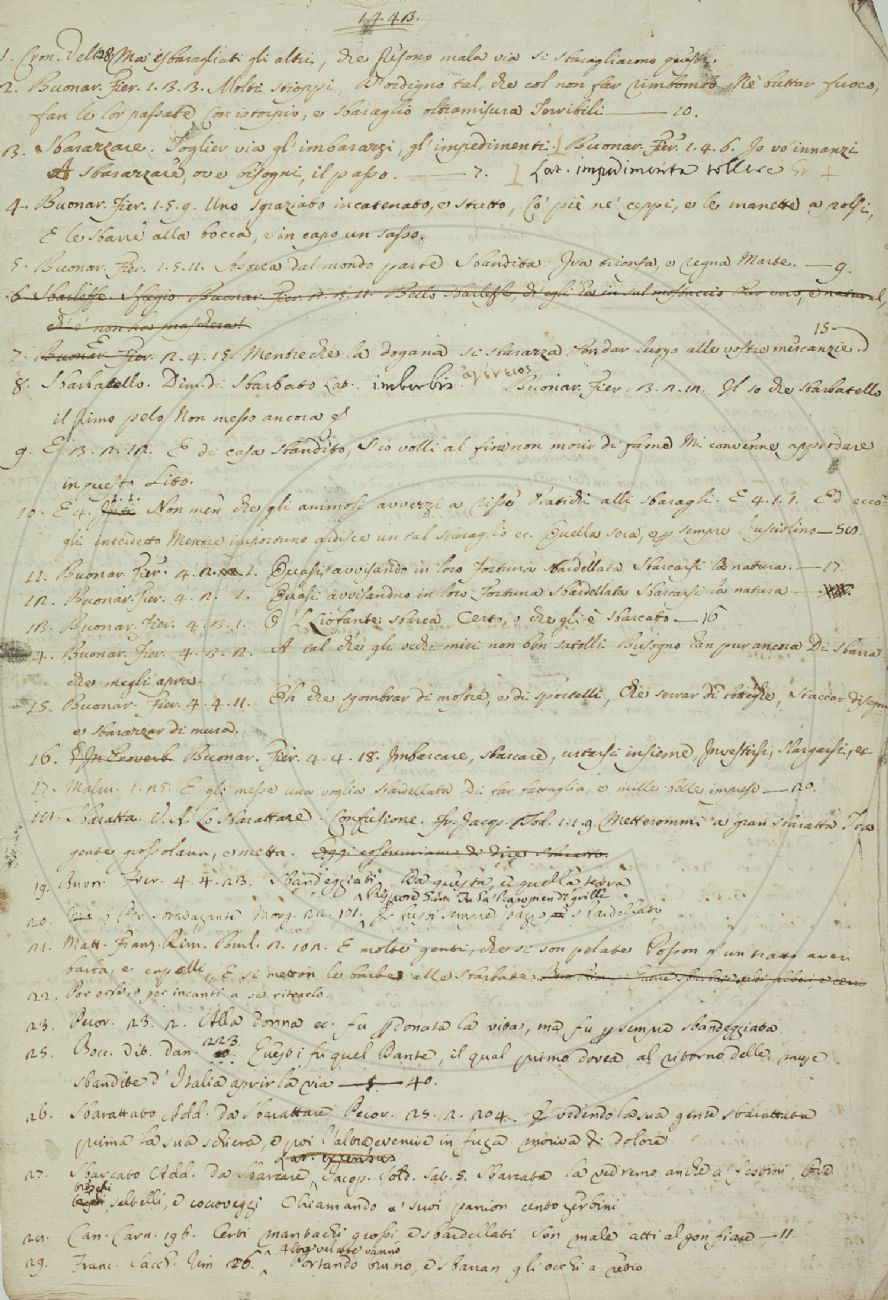 1443.
1. Cron. Vell. 28. Ma sbaragliati gli altri, che fuson mala via si sbaragliarono questi.
2. Buonar. Fier. 1. 3. 3. Molti scioppi, D'ordigno tal, che col non far rimbombo Nè buttar fuoco,
fan le lor passate Con istorpio, e sbaraglio oltramisura Terribili —— 10.
3. Sbarazzare. Toglier via gl'imbarazzi, gl'impedimenti. Buonar. Fier. 1. 4. 6. Io vo innanzi
A sbarazzare, ove bisogni, il passo. —— 7. Lat. impedimenta tollere
4. Buonar. Fier. 1. 5. 9. Uno sgraziato incatenato, e stretto, Co' piè ne' ceppi, e le manette a' polsi,
E le sbarre alla bocca, e in capo un sasso.
5. Buonar. Fier. 1. 5. 11. Astrea dal mondo parte Sbandita: Ira trionfa, e regna Marte. — 9.
6. Sbarleffe. Sfregio. Buonar. Fier. 2. 2. 11. Bello sbarleffe, ch'egli ha in sul mostaccio Per vero, e natural,
15
7. Buonar. Fier. 2. 4. 15. Mentre che la dogana si sbarazza Per dar luogo alle vostre mercanzie.
8. Sbarbatello. Dim. di Sbarbato Lat. imberbis ἀγένειος Buonar. Fier. 3. 2. 12. Il so che sbarbatello
il primo pelo Non messo ancora
9. E 3. 2. 12. E di casa sbandito, S'io volli al fine non morir di fame Mi convenne approdare
in questo Lito.
10. E 4. 1. 1. Non men che gli animosi avvezzi a risse Pratichi alli sbaragli. E 4. 1. 7. Ed ecco
gli intedetto Mentre importuno ardisce un tal sbaraglio ec. Quella sera, e sempre
11. Buonar. Fier. 4. 2. 1. Quasi avvisando in loro Fortuna sbardellata Sbarcarsi la natura. — 17.
12. Buonar. Fier. 4. 2. 1. Quasi avvisandno in loro Fortuna sbardellata Sbarcarsi la natura —
13. Buonar. Fier. 4. 3. 1. O L'Liofante sbarca. Certo, o che gli è sbarcato — 16
14. Buonar. Fier. 4. 3. 2. A tal che gli occhi miei non ben satolli Bisogno han pur ancora Di sbarra
che megli apra.
15. Buonar. Fier. 4. 4. 11. Eh che sgombrar di mostre, e di sportelli, Che serrar di botteghe, staccar disegni
e sbarazzar di mura.
16. E In Proverb Buonar. Fier. 4. 4. 18. Imbarcare, sbarcare, urtarsi insieme, Investirsi, slargarsi, ec
17. Malm. 1. 25. E gli messe una voglia sbardellata Di far battaglia, e mille belle imprese — 20.
18. Sbaratta. V. A. Lo sbarattare. Confusione. Fr. Jacop. Tod. 1. 1. 9. Metterommi a gran sbaratta Tra
gente grossolana, e metta.
19. Buon. Fier. 4. 4. 23. Sbandeggiati Da questa, e quella terra
20. Morg. 22. 101. Rispose Gan: Tu ha' sempremen di grilli E fusti sempre pazzo sbardellato
21. Matt. Franz. Rim. Burl. 2. 102. E molte genti, che si son pelate Posson d'un tratto aver
barba, e capelli, E si metton le barbe alle sbarbate.
22. Per erbe, o per incanti a se ritrarlo.
23. Pecor. 23. 2. Alla donna ec. fu perdonata la vita, ma fu per sempre sbandeggiata
25. Bocc. Vit. Dan. 223. Questi fu quel Dante, il qual primo dovea al ritorno delle muse
sbandite d'Italia aprir la via — 40.
26. Sbarattato Add. da Sbarattare Pecor. 25. 2. 204. E vedendo la sua gente sbarattata
prima la sua schiera, e poi l'altra, e venire in fuga moriva di dolore
Lat. expensus
27. Sbarcato Add. da Sbarcare, Jacop. Sold. Sat. 5. Sbarcata la vedremo anche a' festini,
selbelli, e cocoveggi Chiamando a' suoi panion cento zerbini
28. Can. Carn. 196. Certi mantachi grossi, e sbardellati Son male atti al gonfiare — 11.
29. Franc. Sacch. rim 26. Altre velate vanno Portando bruno, e sbarran gli occhi a retro.